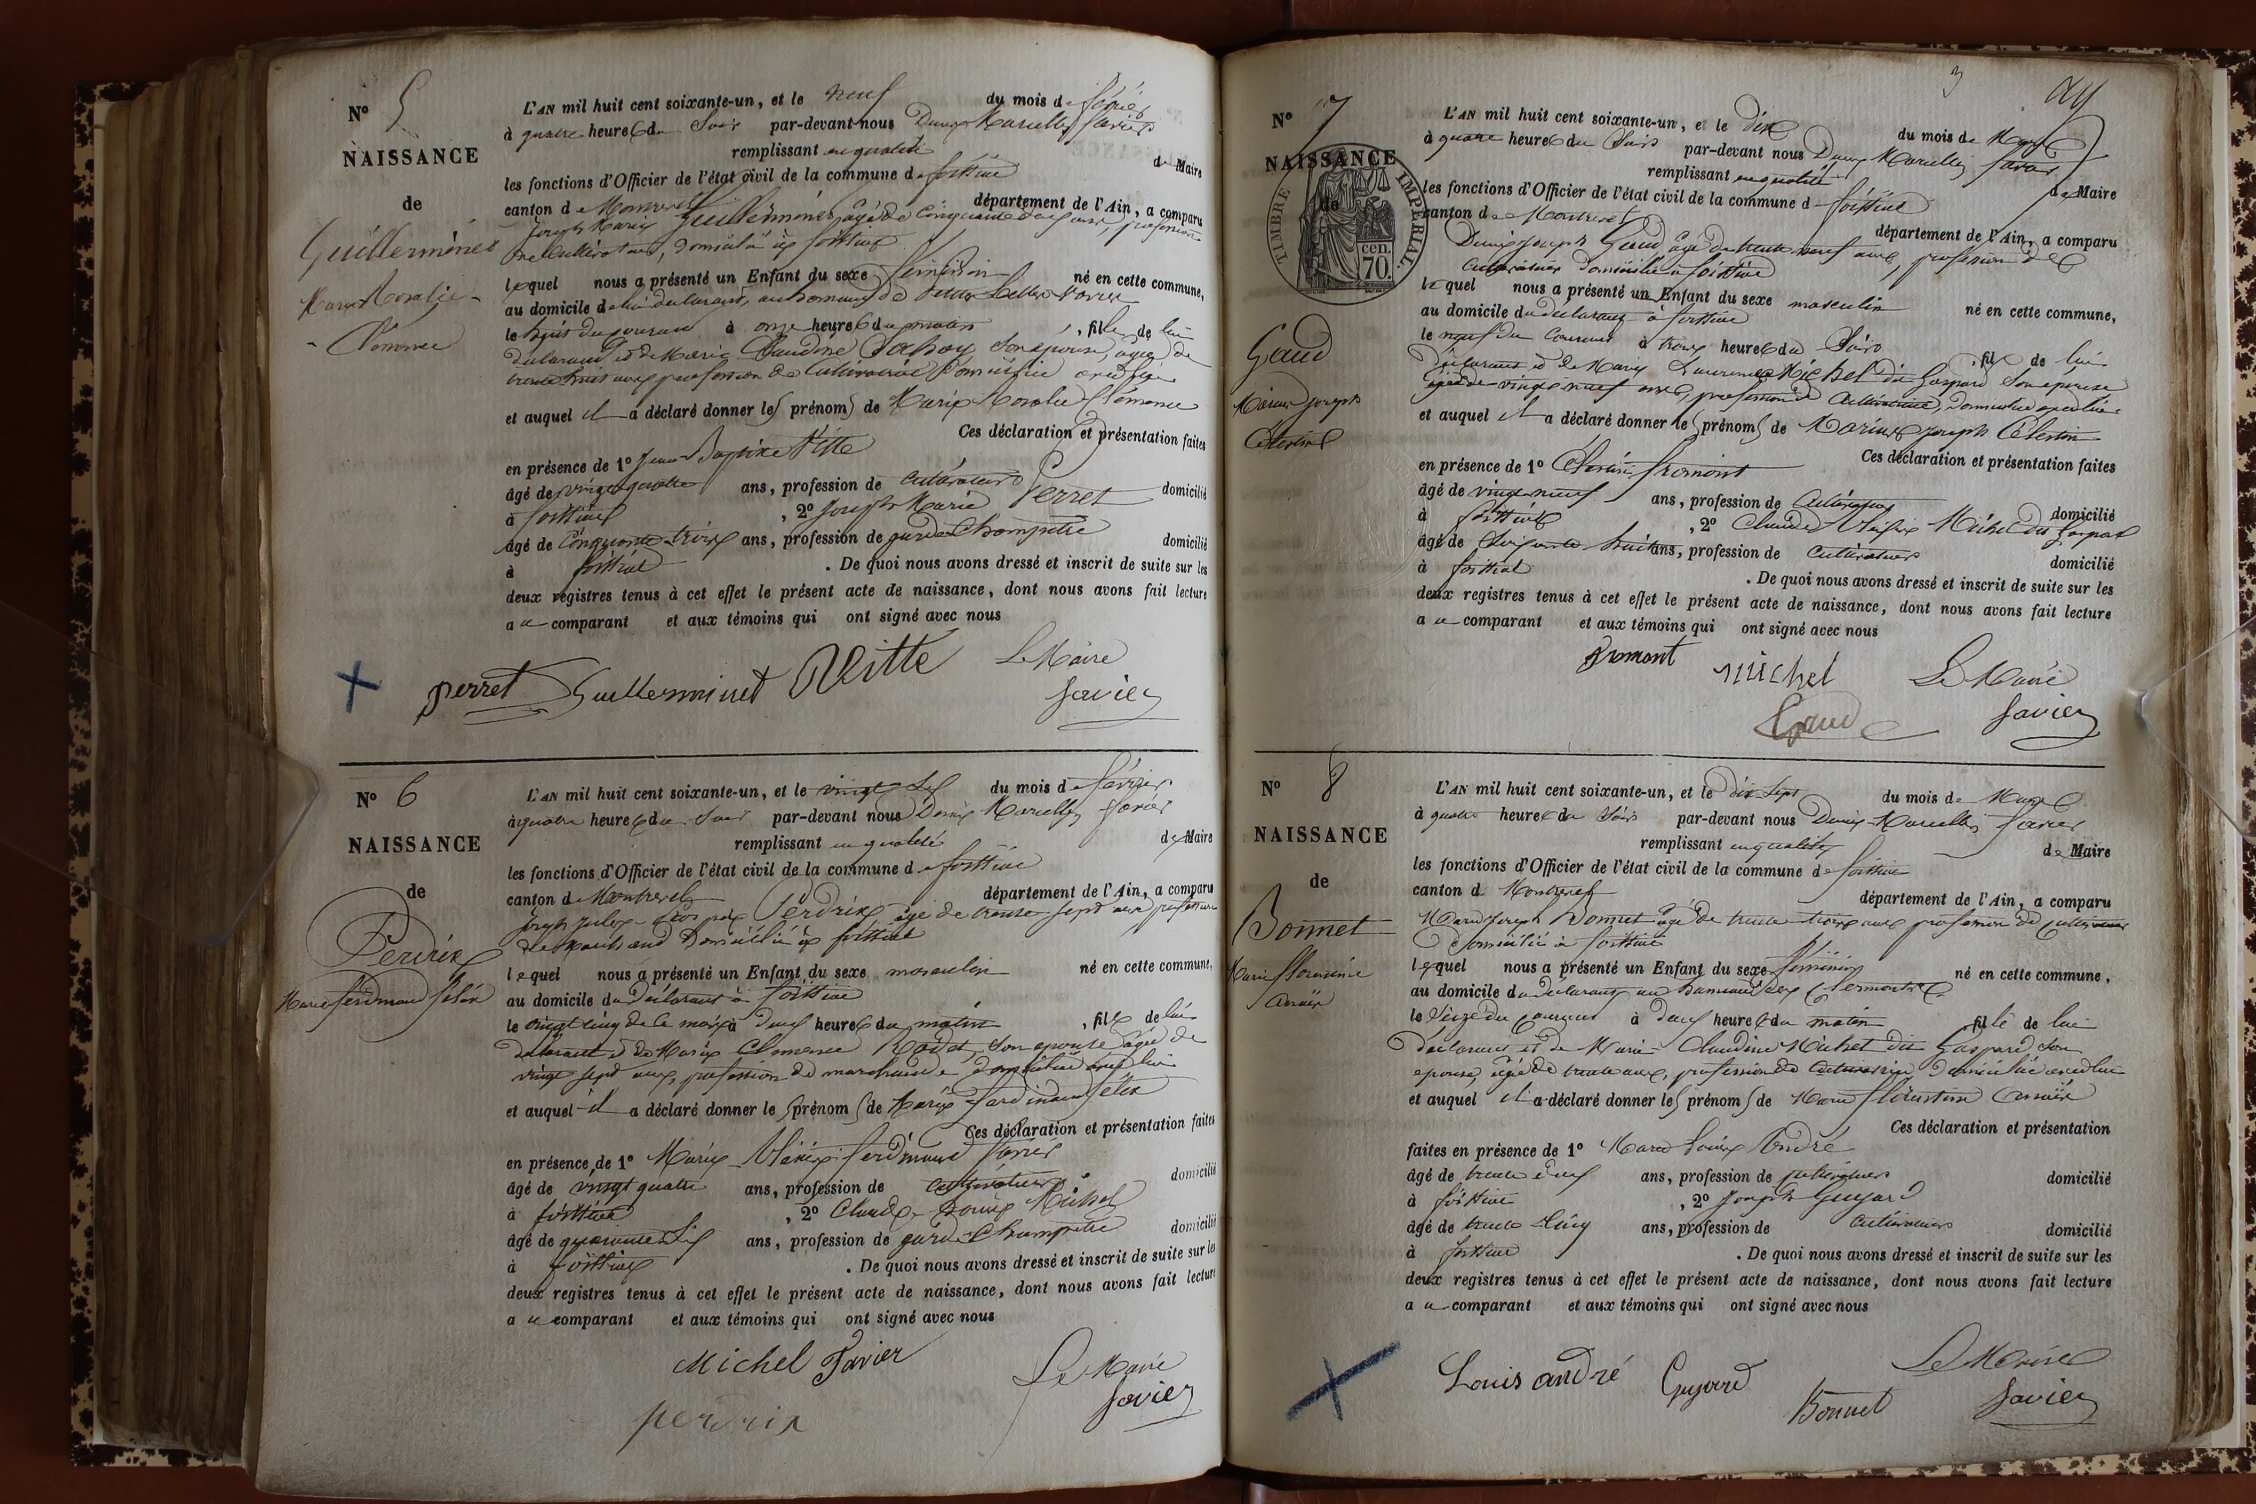 N° 5
NAISSANCE
de
Guillerminet
Marie Rosalie
Clémence
L'AN mil huit cent soixante-un, et le neuf du mois de février
à quatre heures du Soir par-devant nous Denis Marcellin Favier
remplissant en qualité de Maire
les fonctions d'Officier de l'état civil de la commune de foissiat
canton de Montrevel département de l'Ain, a comparu
Joseph Marie Guillerminet, âgé de cinquante ans, profession
de Cultivateur, domicilié à foissiat
lequel nous a présenté un Enfant du sexe féminin né en cette commune,
au domicile de lui déclarant, au hameau de
le huit du courant à onze heures du matin, fille de lui
déclarant et de Marie Claudine son épouse, âgée de
trente huit ans, profession de Cultivatrice domiciliée avec lui
et auquel il a déclaré donner les prénoms de Marie Rosalie Clémence
Ces déclaration et présentation faites
en présence de 1° Jean Baptiste Vitte
âgé de vingt quatre ans, profession de cultivateur domicilié
à foissiat, 2° Joseph Marie Perret
âgé de Cinquante trois ans, profession de garde Champêtre domicilié
à foissiat. De quoi nous avons dressé et inscrit de suite sur les
deux registres tenus à cet effet le présent acte de naissance, dont nous avons fait lecture
au comparant et aux témoins qui ont signé avec nous
perret Guillerminet Vitte Le Maire
favier
N° 6
NAISSANCE
de
Perdrix
Marie ferdinand félix
L'AN mil huit cent soixante-un, et le vingt Six du mois de février
à quatre heures du Soir par-devant nous Denis Marcellin favier
remplissant en qualité de Maire
les fonctions d'Officier de l'état civil de la commune de foissiat
canton de Montrevel département de l'Ain, a comparu
Joseph Perdrix, âgé de trente sept ans profession
de marchand domicilié à foissiat
lequel nous a présenté un Enfant du sexe masculin né en cette commune,
au domicile du déclarant à foissiat
le vingt cinq de ce mois à deux heures du matin, fils de lui
déclarant et de Marie Clémence son épouse âgée de
vingt sept ans, profession de marchande domiciliée avec lui
et auquel il a déclaré donner les prénoms de Marie ferdinand félix
Ces déclaration et présentation faites
en présence de 1° Marie ferdinand favier
âgé de vingt quatre ans, profession de cultivateur domicilié
à foissiat, 2° Claude Louis Michel
âgé de quarante Six ans, profession de garde Champêtre domicilié
à foissiat. De quoi nous avons dressé et inscrit de suite sur les
deux registres tenus à cet effet le présent acte de naissance, dont nous avons fait lecture
au comparant et aux témoins qui ont signé avec nous
Michel favier Le Maire
perdrix favier
3
N° 7
NAISSANCE
de
TIMBRE IMPERIAL
cen.
70.
Gaud
Marius joseph
Célestin
L'AN mil huit cent soixante-un, et le dix du mois de Mars
à quatre heures du Soir par-devant nous Denis Marcellin favier
remplissant en qualité de Maire
les fonctions d'Officier de l'état civil de la commune de foissiat
canton de Montrevel département de l'Ain, a comparu
Denis joseph Gaud âgé de trente neuf ans, profession de
Cultivateur domicilié à foissiat
lequel nous a présenté un Enfant du sexe masculin né en cette commune,
au domicile du déclarant à foissiat
le neuf du courant à trois heures du Soir fils de lui
déclarant et de Marie Laurence Michel dit Gaspard son épouse
âgée de vingt neuf ans, profession de Cultivatrice, domiciliée avec lui
et auquel il a déclaré donner les prénoms de Marius joseph Célestin
Ces déclaration et présentation faites
en présence de 1° fromont
âgé de vingt neuf ans, profession de Cultivateur domicilié
à foissiat, 2° Claude Michel dit Gaspard
âgé de Soixante huit ans, profession de cultivateur domicilié
à foissiat. De quoi nous avons dressé et inscrit de suite sur les
deux registres tenus à cet effet le présent acte de naissance, dont nous avons fait lecture
au comparant et aux témoins qui ont signé avec nous
fromont Michel Le Maire
Gaud favier
N° 8
NAISSANCE
de
Bonnet
Marie florentine
L'AN mil huit cent soixante-un, et le dix Sept du mois de Mars
à quatre heures du Soir par-devant nous Denis Marcellin favier
remplissant en qualité de Maire
les fonctions d'Officier de l'état civil de la commune de foissiat
canton de Montrevel département de l'Ain, a comparu
Marie joseph Bonnet âgé de trente trois ans profession de cultivateur
domicilié à foissiat
lequel nous a présenté un Enfant du sexe féminin né en cette commune,
au domicile du déclarant au hameau des
le Seize du courant à deux heures du matin fille de lui
déclarant et de Marie Claudine Michel dit Gaspard son
épouse, âgée de trente ans, profession de cultivatrice domiciliée avec lui
et auquel il a déclaré donner les prénoms de Marie florentine
Ces déclaration et présentation
faites en présence de 1° Marie Louis André
âgé de trente deux ans, profession de cultivateur domicilié
à foissiat, 2° Joseph Guyard
âgé de trente cinq ans, profession de cultivateur domicilié
à foissiat. De quoi nous avons dressé et inscrit de suite sur les
deux registres tenus à cet effet le présent acte de naissance, dont nous avons fait lecture
au comparant et aux témoins qui ont signé avec nous
Louis andré Guyard Le Maire
Bonnet favier